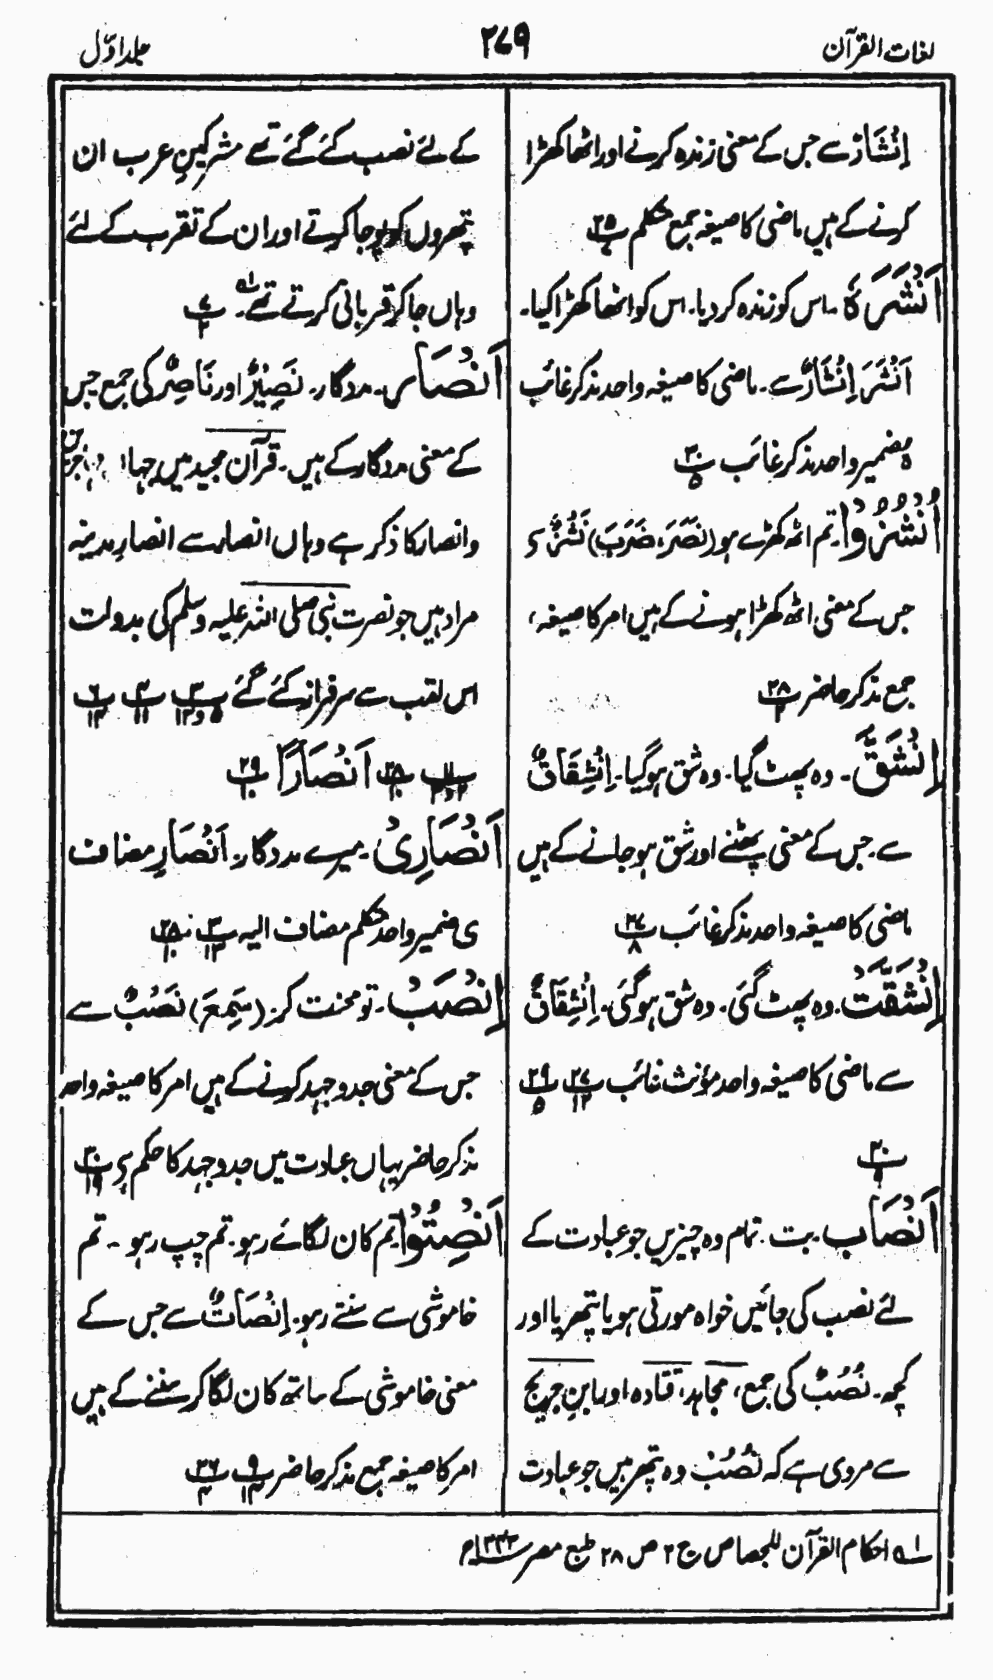 لغات القرآن
۲۷۹
جلد اوّل
اِنْشَازٌ سے جس کے معنی زندہ کرنے اور اٹھا کھڑا
کرنے کے ہیں ماضی کا صیغہ جمع متکلم پ۲۵
اَنْشَرَہٗ ۔ اس کو زندہ کر دیا۔ اس کو اٹھا کھڑا کیا۔
اَنْشَرَ اِنْشَارٌ سے۔ ماضی کا صیغہ واحد مذکر غائب
ہ ضمیر واحد مذکر غائب پ۳۰ ۵
اُنْشُزُوْا۔ تم اٹھ کھڑے ہو (نَصَرَ، ضَرَبَ) نَشْزٌ سے
جس کے معنی اٹھ کھڑا ہونے کے ہیں امر کا صیغہ،
جمع مذکر حاضر پ۲۸ ۲
اِنْشَقَّ ۔ وہ پھٹ گیا۔ وہ شق ہو گیا۔ اِنْشِقَاقٌ
سے۔ جس کے معنی پھٹنے اور شق ہو جانے کے ہیں
ماضی کا صیغہ واحد مذکر غائب پ۲۷ ۸
اِنْشَقَّتْ۔ وہ پھٹ گئی۔ وہ شق ہو گئی۔ اِنْشِقَاقٌ
سے ماضی کا صیغہ واحد مؤنث غائب پ۲۷ ۱۲ پ۲۹ ۵
پ۳۰ ۹
اَنْصَاب ۔ بت۔ تمام وہ چیزیں جو عبادت کے
لئے نصب کی جائیں خواہ مورتی ہو یا پتھر یا اور
کچھ۔ نُصُبٌ کی جمع، مجاہد، قتادہ اور ابن جریج
سے مروی ہے کہ نُصُبْ وہ پتھر ہیں جو عبادت
کے لئے نصب کئے گئے تھے مشرکینِ عرب ان
پتھروں کو پوجا کرتے اور ان کے تقرب کے لئے
وہاں جا کر قربانی کرتے تھے۔ ؎۱ پ۷ ۲
اَنْصَار۔ مددگار۔ نَصِیْرٌ اور نَاصِرٌ کی جمع جس
کے معنی مددگار کے ہیں۔ قرآن مجید میں جہاں مہاجرین
و انصار کا ذکر ہے وہاں انصار سے انصارِ مدینہ
مراد ہیں جو نصرت نبی صلی اللہ علیہ وسلم کی بدولت
اس لقب سے سرفراز کئے گئے پ۳ ۵ و ۱۳ پ۴ ۱۱ پ۶ ۱۴
پ۱۱ ۲ و ۳ پ۲۸ ۱۰ اَنْصَارًا پ۲۹ ۱۰
اَنْصَارِیْ ۔ میرے مددگار۔ اَنْصَارِ مضاف
ی ضمیر واحد متکلم مضاف الیہ پ۳ ۱۳ پ۲۸ ۱۰
اِنْصَبْ ۔ تو محنت کر۔ (سَمِعَ) نَصَبٌ سے
جس کے معنی جدوجہد کرنے کے ہیں امر کا صیغہ واحد
مذکر حاضر یہاں عبادت میں جدوجہد کا حکم ہے پ۳۰ ۱۹
اَنْصِتُوْا۔ تم کان لگائے رہو۔ تم چپ رہو ۔ تم
خاموشی سے سنتے رہو۔ اِنْصَاتٌ سے جس کے
معنی خاموشی کے ساتھ کان لگا کر سننے کے ہیں
امر کا صیغہ جمع مذکر حاضر پ۹ ۱۴ پ۲۶ ۴
؎۱ احکام القرآن للجصاص ج ۲ ص ۲۸ طبع مصر